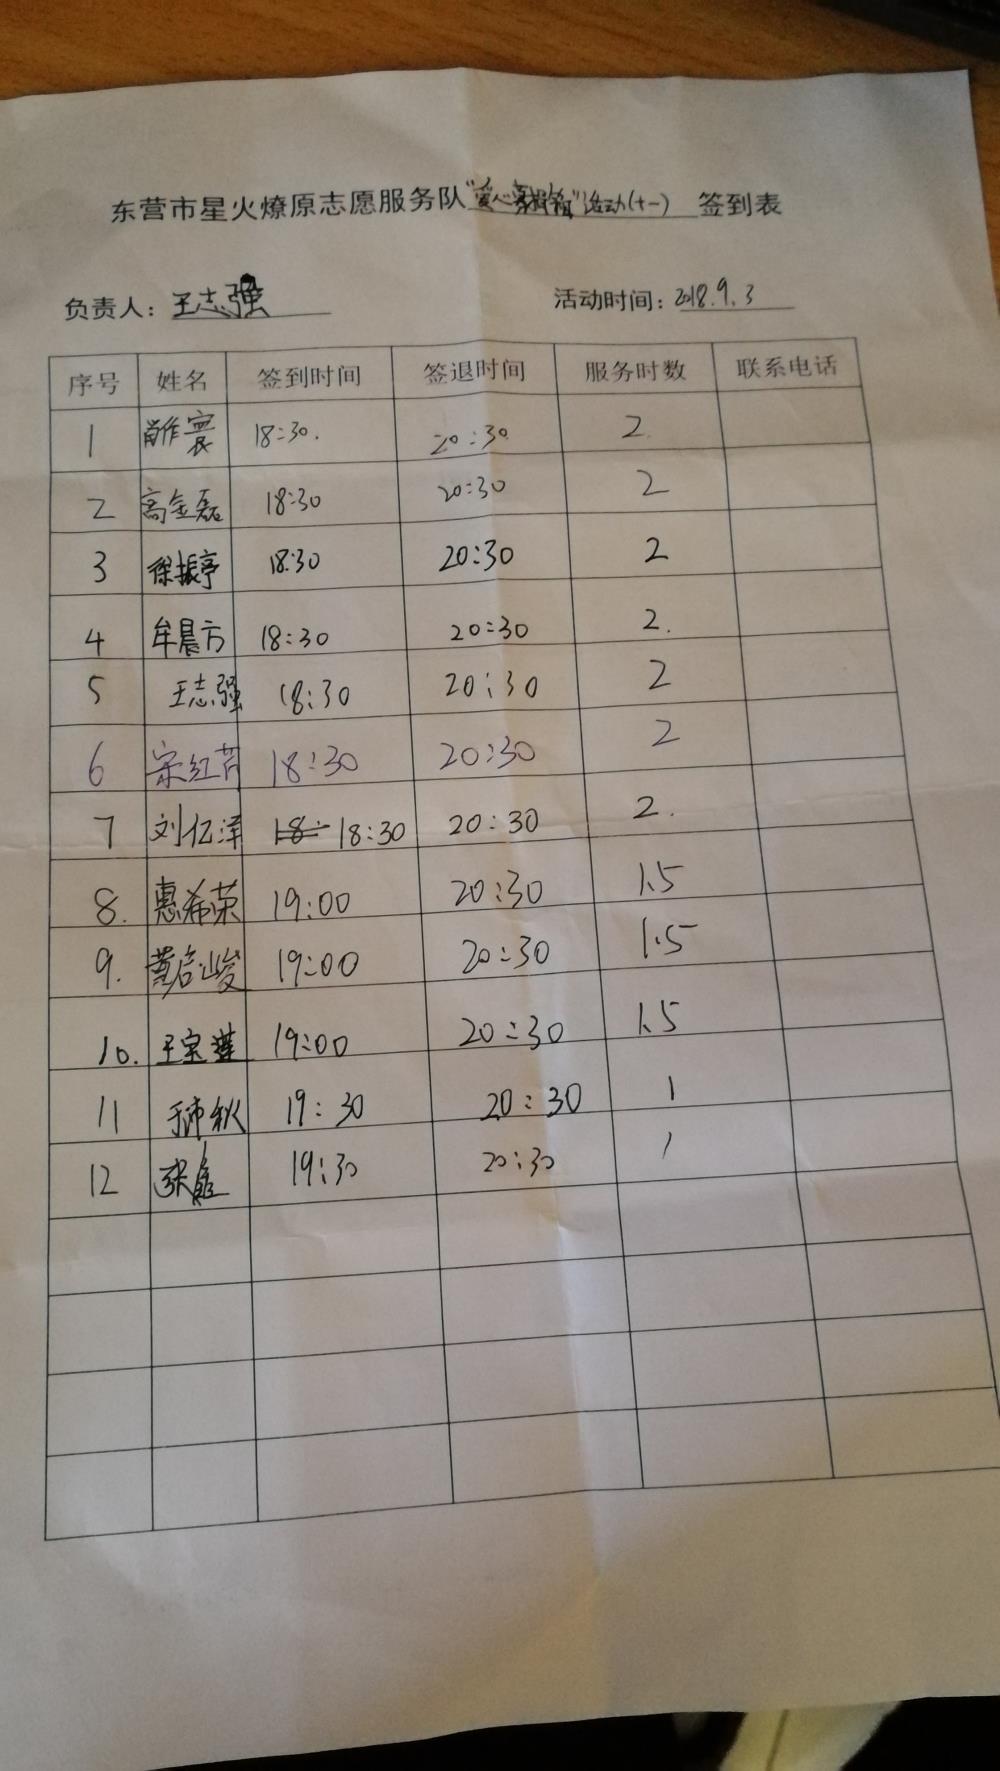 东营市星火燎原志愿服务队"爱心募捐箱"活动(十一) 签到表
负责人：王志强 活动时间：2018.9.3
序号 姓名 签到时间 签退时间 服务时数 联系电话
1 18:30. 20:30 2
2 高金磊 18:30 20:30 2
3 徐振亭 18:30 20:30 2
4 牟晨方 18:30 20:30 2.
5 王志强 18:30 20:30 2
6 宋红芹 18:30 20:30 2
7 刘亿泽 18: 18:30 20:30 2.
8. 惠希荣 19:00 20:30 1.5
9. 黄启峻 19:00 20:30 1.5
10. 王宝莲 19:00 20:30 1.5
11 19:30 20:30 1
12 19:30 20:30 1